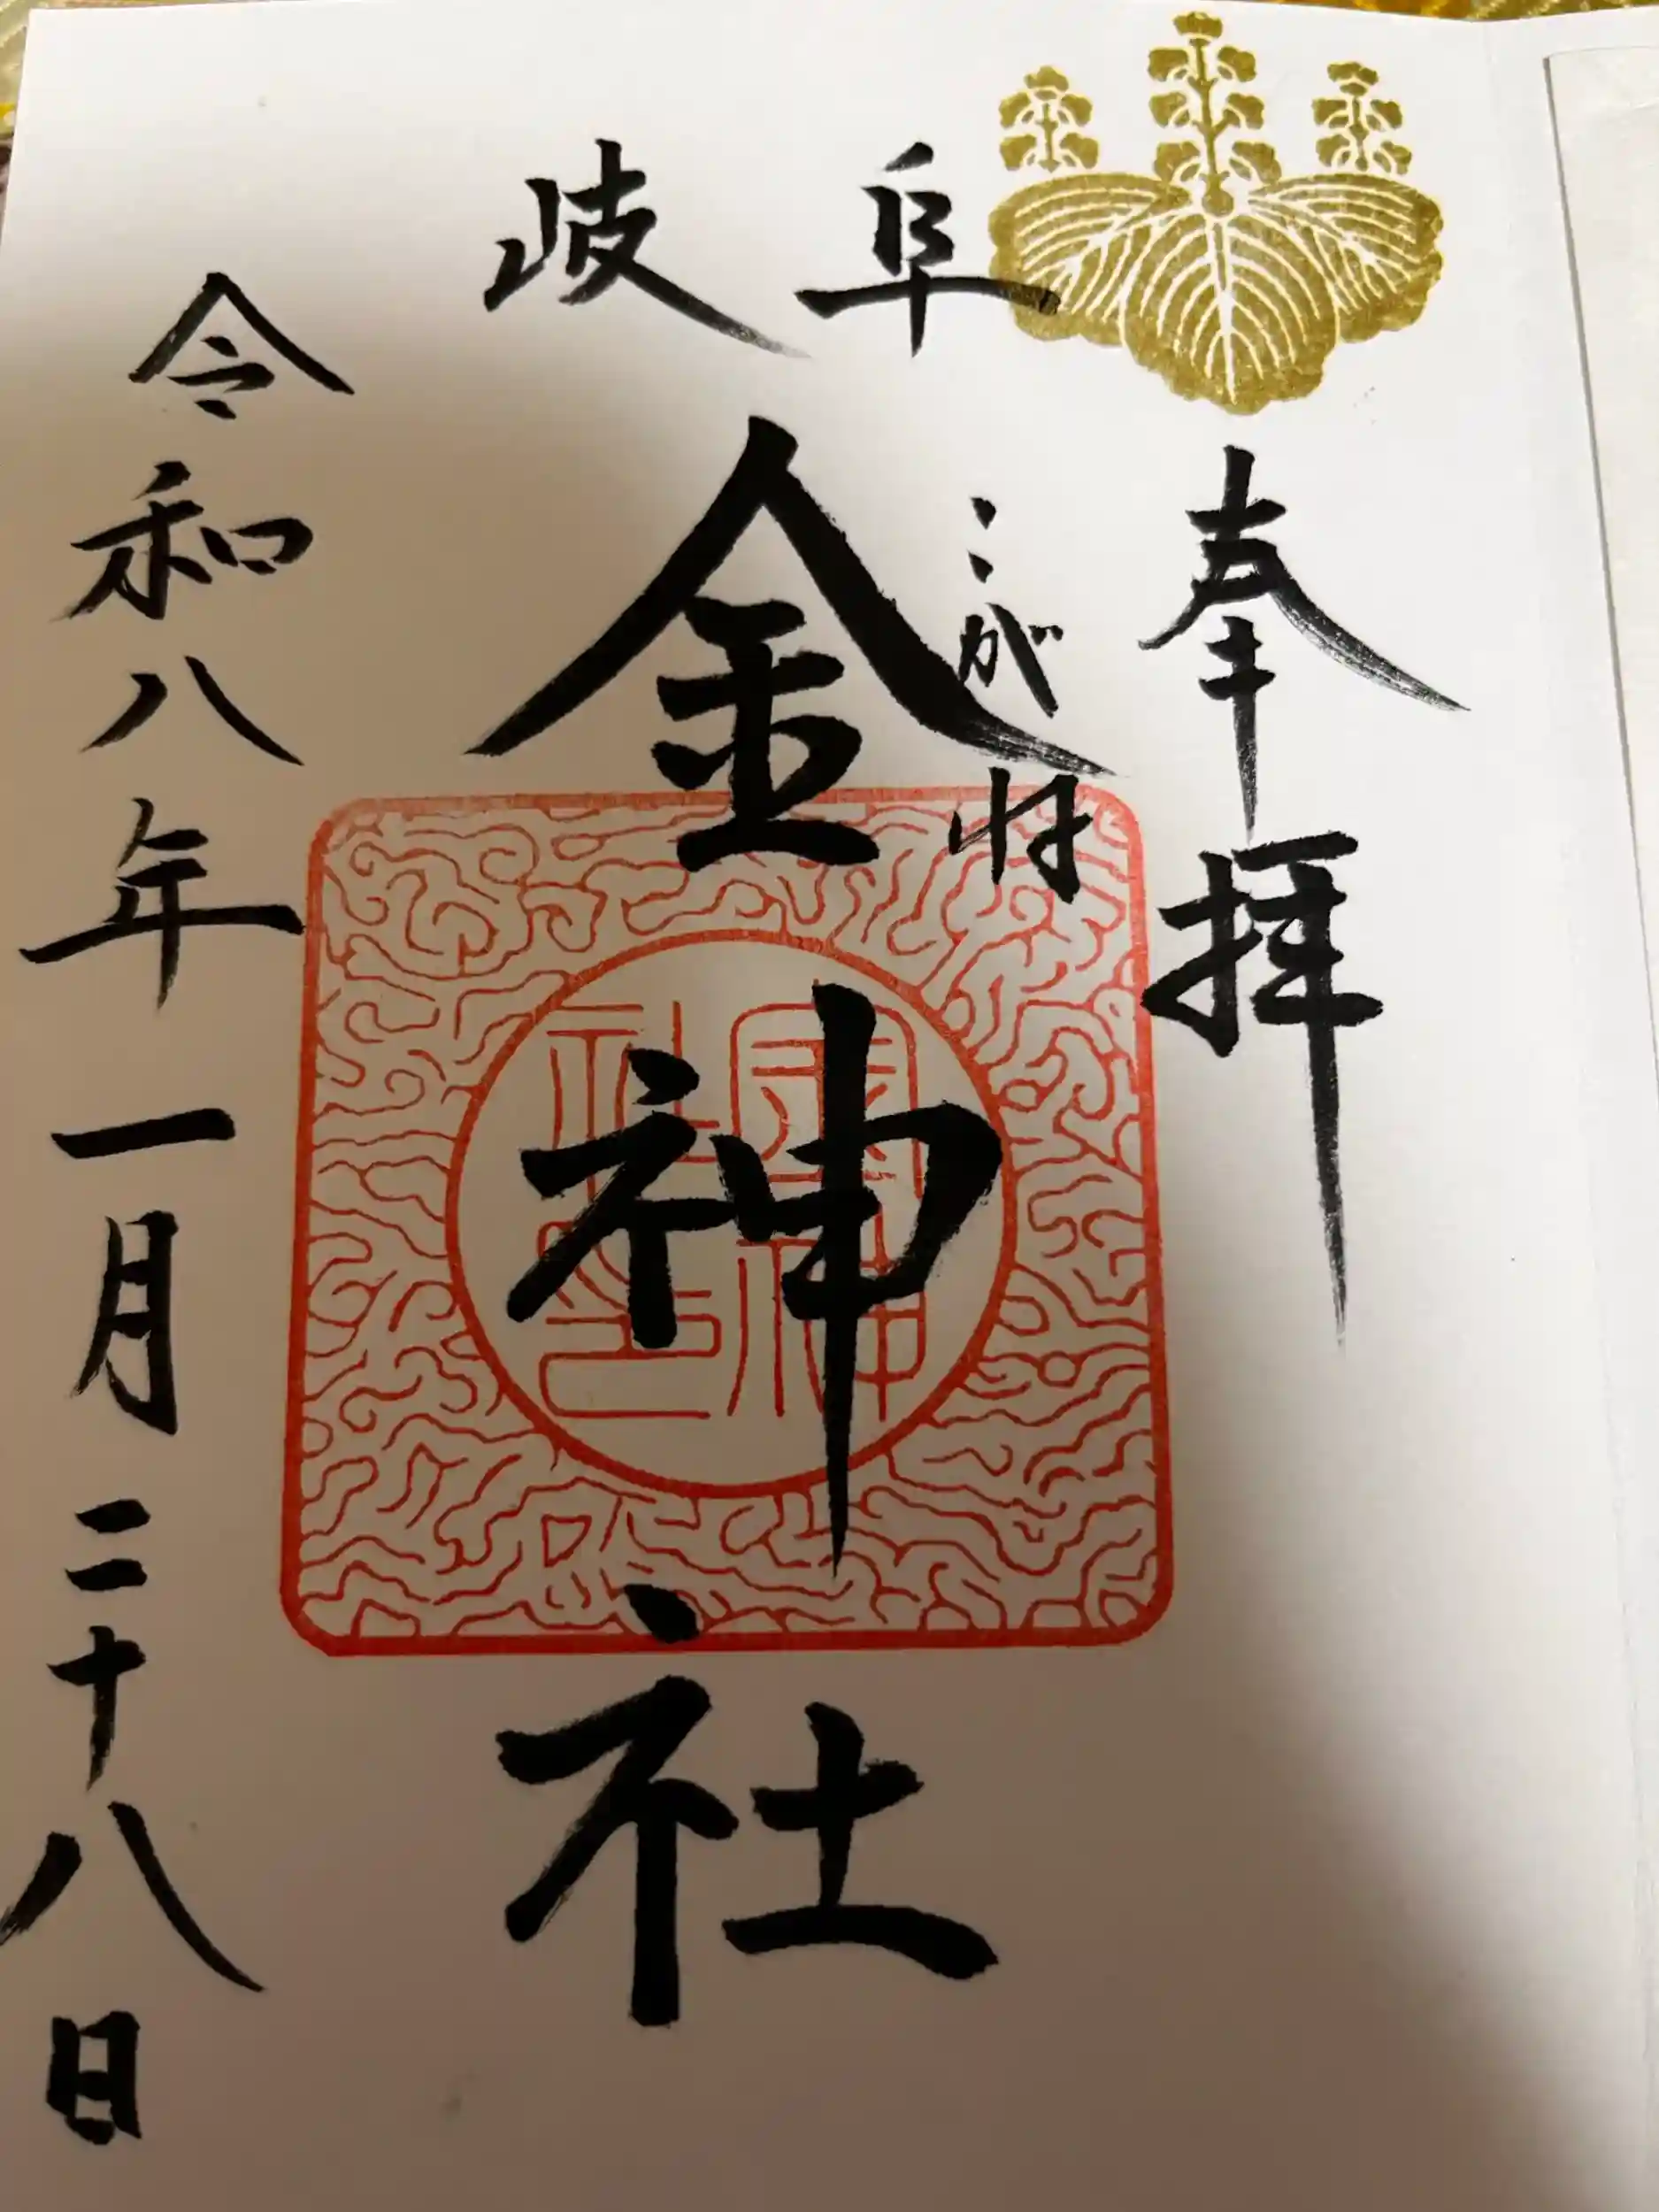 岐阜
奉拝
こがね
金神社
令和八年一月二十八日